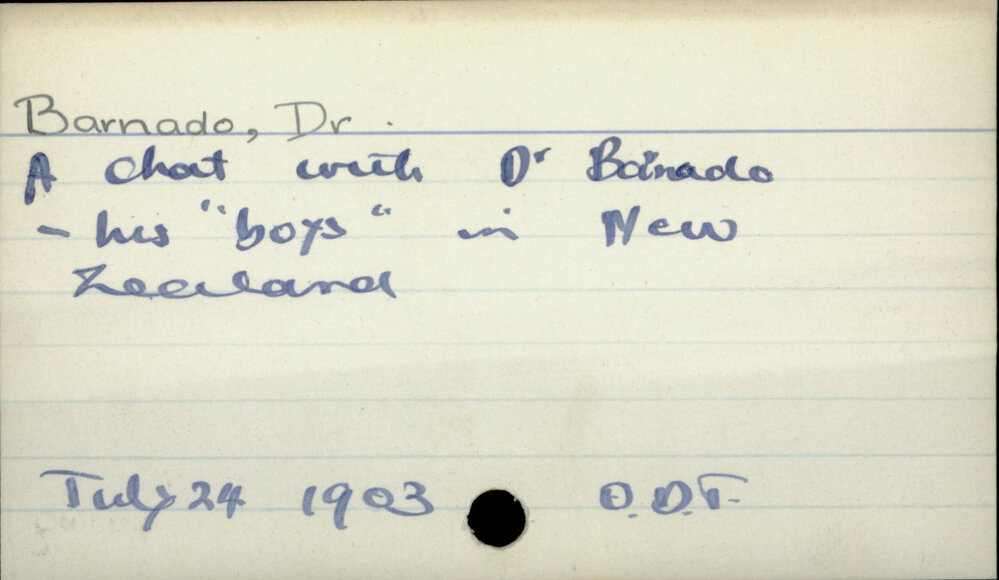 Barnado, Dr.
A chat with Dr Barnado
- his "boys" in New
Zealand
July 24 1903 O.D.T.